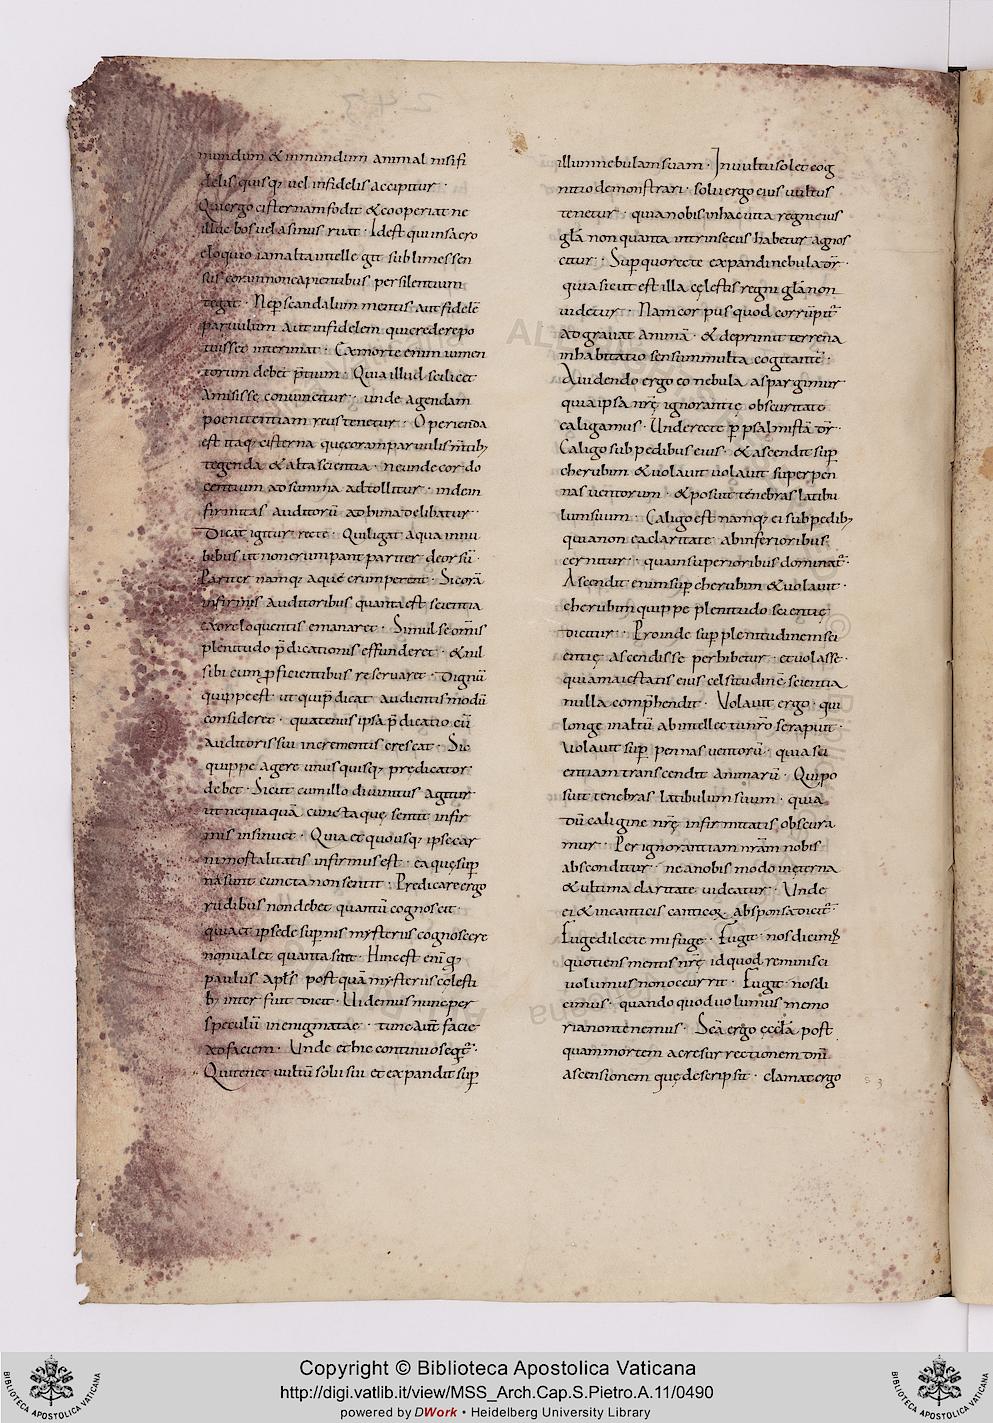 mundum & inmundum animal nisi fi
delis quisq; uel infidelis accipitur ·
Qui ergo cisternam fodit & cooperiat ne
illuc bos uel asinus ruat · Idest qui in sacro
eloquio iam alta intellegit sublimes sen
sus coram non capientibus per silentium
tegat · Nep scandalum mentis aut fidelē
paruulum aut infidelem qui credere po
tuisset interimat · Ca morte enim iumen
torum debet p̄tium · Quia illud scilicet
Amisisse conuincitur · unde agendam
poenitentiam reus tenetur · Operienda
est itaq; cisterna quę coram paruulis m̄tib;
tegenda & alta scientia · ne unde cor do
centium ad summa adtollitur · indein
firmitas auditorū ad bima delibatur ·
Dicat igitur recte · Qui ligat aqua in nu
bibus ut non erumpant pariter deorsū ·
Pariter namq; aquę erumperent · Si corā
infirmis auditoribus quanta est scientia
ex ore loquentis emanaret · Simul se om̄is
plenitudo p̄dicationis effunderet · & nil
sibi cum proficientibus reseruaret · Dignū
quippe est · ut qui p̄dicat audientis modū
consideret · quatenus ipsa p̄dicatio cū
auditoris sui incrementis crescat · Sic
quippe agere unusquisq; prędicator
debet · Sicut cum illo diuinitus agitur
ut nequaquā cuncta quę sentit infir
mis insinuet · Quia et quousq; ipse car
ni mortalitatis infirmus est · ea quę sup
nā sunt cuncta non sentit · Predicare ergo
rudibus non debet quantū cognoscit ·
quia et ipse de supnis mysteriis cognoscere
non ualet quanta sint · Hinc est enī q;
paulus apłs post quā mysteriis cęlesti
b; inter fuit dicit · Uidemus nunc per
speculū in enigmatae · tunc aut̄ facie
ad faciem · Unde et hic continuo seqt̄ ·
Qui tenet uultū solii sui et expandit sup
illum nebulam suam · In uultu solet cog
nitio demonstrari · solu ergo eius uultus
tenetur · quia nobis in hac uita regni eius
gła non quanta intrinsecus habetur agnos
citur · Sup quo recte expandi nebula dr̄ ·
quia sicut est illa cęlestis regni gła non
uidetur · Nam corpus quod corrūpit̄
adgrauat animā · & deprimit terrena
inhabitatio sensum multa cogitantē ·
A uidendo ergo eo nebula aspargimur
quia ipsa nr̄ę ignorantię obscuritate
caligamus · Unde recte p psalmistā dr̄ ·
Caligo sub pedibus eius · & ascendit sup
cherubim & uolauit uolauit super pen
nas uentorum · & posuit tenebras latibu
lum suum · Caligo est namq; ei sub pedib;
quia non ea claritate ab inferioribus
cernitur · qua in superioribus dominat̄ ·
Ascendit enim sup cherubim & uolauit ·
cherubim quippe plenitudo scientię
dicitur · Proinde sup plenitudinem sci
entię ascendisse perhibetur · et uolasse ·
quia maiestatis eius celsitudinē scientia
nulla comp̄hendit · Volauit ergo · qui
longe in altū ab intellectu nr̄o se rapuit ·
Uolauit sup pennas uentorū · quia sci
entiam transcendit animarū · Qui po
suit tenebras latibulum suum · quia
dū caligine nr̄ę infirmitatis obscura
mur · Per ignorantiam nr̄am nobis
absconditur · ne a nobis modo in ęterna
& ultima claritate uideatur · Unde
ei & in canticis canticoꝝ ab sponsa dicit̄ ·
Fuge dilecte mi fuge · Fugit nos dicim;
quotiens mentis nr̄ę id quod reminisci
uolumus non occurrit · Fugit nos di
cimus · quando quod uolumus memo
ria non tenemus · Scā ergo ęccła post
quam mortem ac resurrectionem dn̄i
ascensionem quę descripsit · clamat ergo
Copyright © Biblioteca Apostolica Vaticana
http://digi.vatlib.it/view/MSS_Arch.Cap.S.Pietro.A.11/0490
powered by DWork • Heidelberg University Library